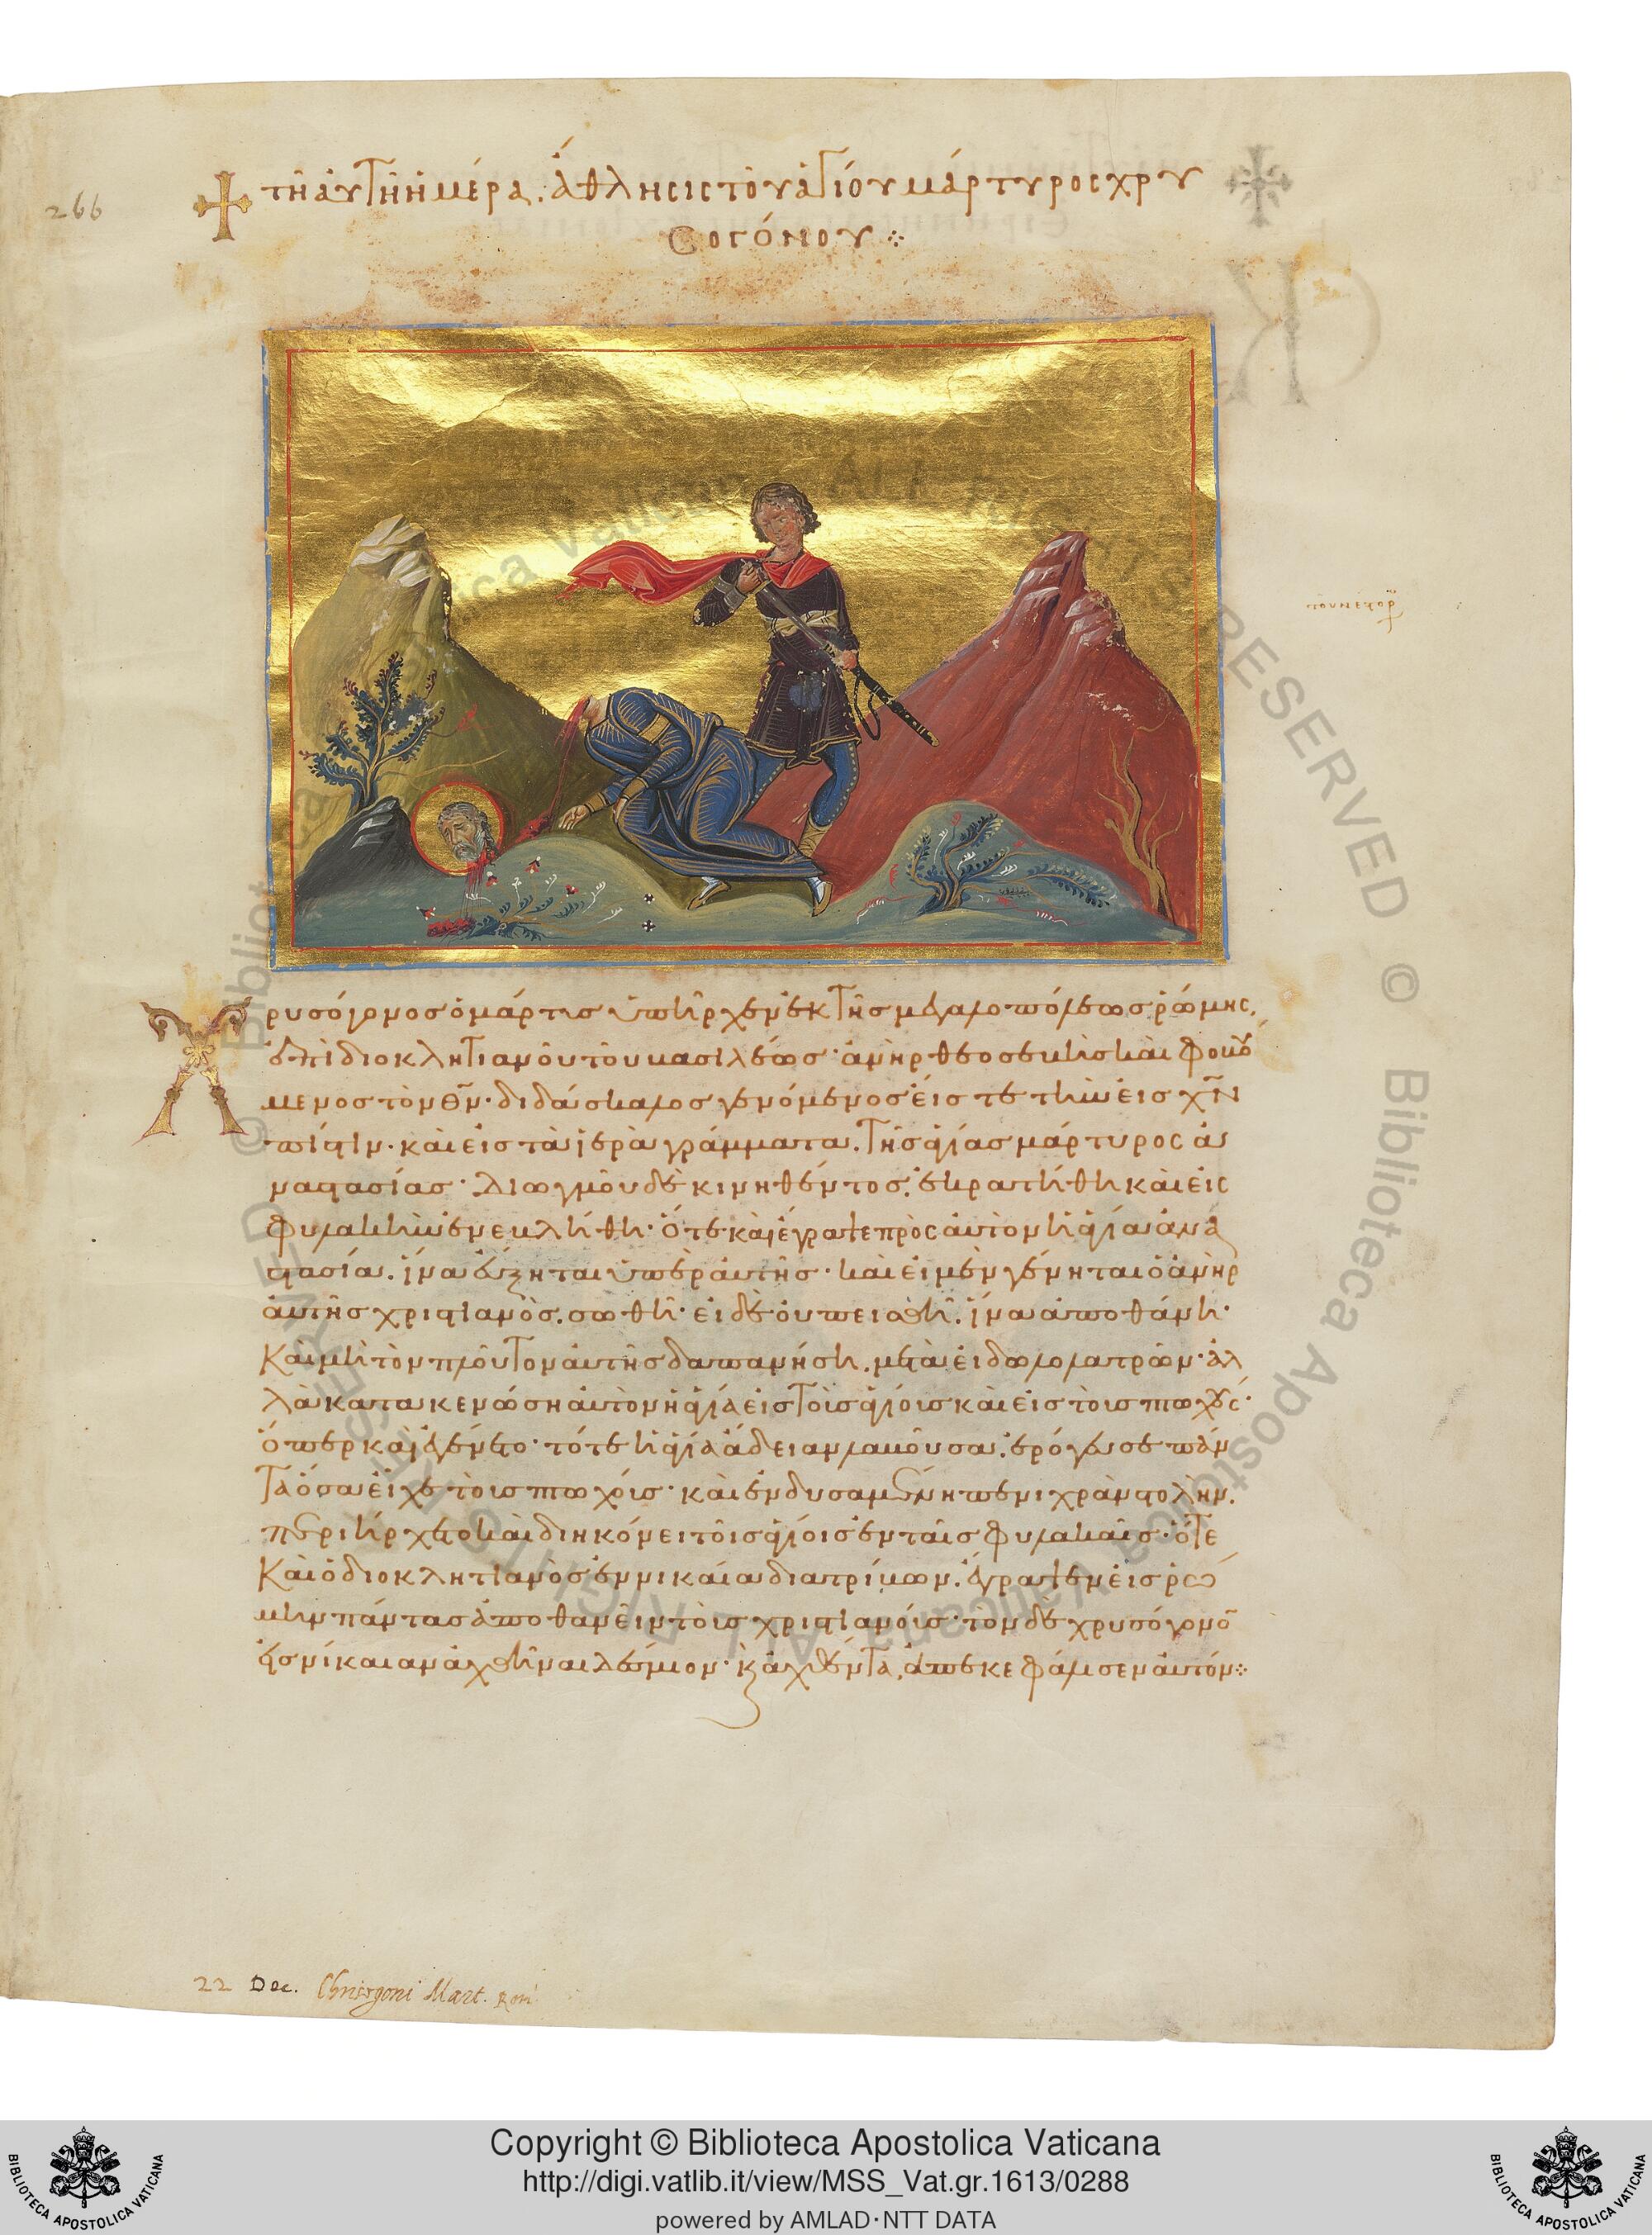 266
τῇ αὐτῇ ἡμέρᾳ. ἄθλησις τοῦ ἁγίου μάρτυρος χρυ
σογόνου
Χρυσόγονος ὁ μάρτυς ὑπῆρχεν ἐκ τῆς μεγαλοπόλεως ῥώμης.
ἐπὶ διοκλητιανοῦ τοῦ βασιλέως· ἀνὴρ θεοσεβὴς καὶ φοβού
μενος τὸν θν· διδάσκαλος γενόμενος εἴς τε τὴν εἰς χν
πίστιν· καὶ εἰς τὰ ἱερὰ γράμματα. τῆς ἁγίας μάρτυρος ἀ
ναστασίας· διωγμοῦ δὲ κινηθέντος. ἐκρατήθη καὶ εἰς
φυλακὴν ἐνεβλήθη· ὅτε καὶ ἔγραψε πρὸς αὐτὸν ἡ ἁγία ἀνα
στασία. ἵνα εὔξηται ὑπὲρ αὐτῆς· καὶ εἰ μὲν γένηται ὁ ἀνὴρ
αὐτῆς χριστιανὸς. σωθῇ· εἰ δὲ οὐ πεισθῇ. ἵνα ἀποθάνῃ·
Καὶ μὴ τὸν πλοῦτον αὐτῆς δαπανήσῃ. μετὰ εἰδωλολατρῶν· ἀλ
λὰ κατακενώσῃ αὐτὸν ἡ ἁγία εἰς τοὺς ἁγίους καὶ εἰς τοὺς πτωχούς·
ὅπερ καὶ ἐγένετο· τότε ἡ ἁγία ἄδειαν λαβοῦσα. ἐρόγευσε πάν
τα ὅσα εἶχε τοῖς πτωχοῖς· καὶ ἐνδυσαμένη πενιχρὰν στολὴν.
περιήρχετο καὶ διηκόνει τοῖς ἁγίοις ἐν ταῖς φυλακαῖς· ὅτε
Καὶ ὁ διοκλητιανὸς ἐν νικαίᾳ διατρίβων. ἔγραψεν εἰς ῥώ
μην πάντας ἀποθανεῖν τοὺς χριστιανούς· τὸν δὲ χρυσόγονον
εἰς νίκαιαν ἀχθῆναι δέσμιον· καὶ ἀχθέντα, ἀπεκεφάλισεν αὐτόν
22 Dec. Chrisogoni Mart. Rom
Copyright © Biblioteca Apostolica Vaticana
http://digi.vatlib.it/view/MSS_Vat.gr.1613/0288
powered by AMLAD·NTT DATA
BIBLIOTECA APOSTOLICA VATICANA
BIBLIOTECA APOSTOLICA VATICANA